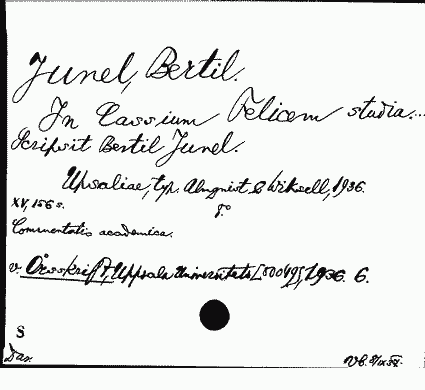 Junel, Bertil.
In Cassium Felicem studia...
Scripsit Bertil Junel.
Upsaliae, typ. Almqvist & Wiksell, 1936.
XV, 156 s. 8°
Commentatio academica.
v. Årsskrift, Uppsala Universitets 1936. 6.
S
Dar.